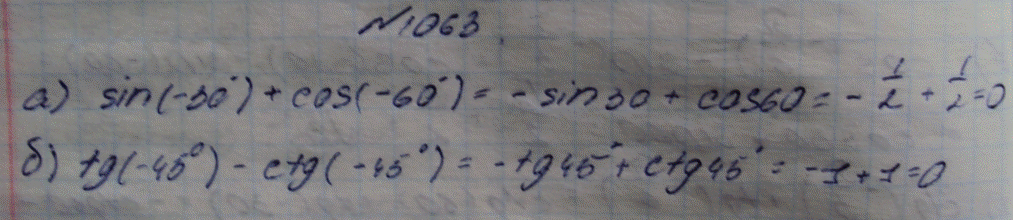 №1063.
а) sin(-30°) + cos(-60°) = - sin30 + cos60 = - 1/2 + 1/2 = 0
б) tg(-45°) - ctg(-45°) = -tg45° + ctg45° = -1+1=0